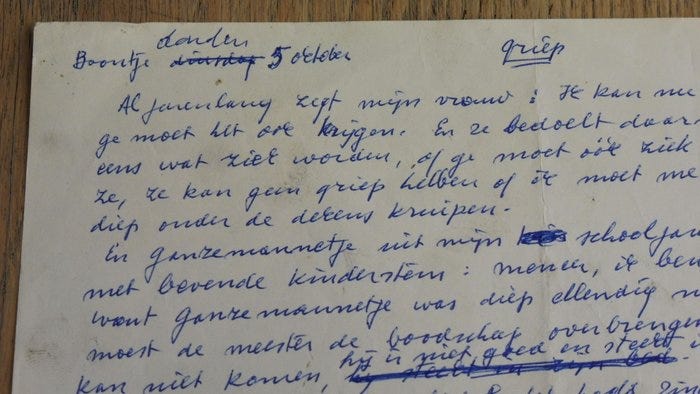 donder
Boontje dinsdag 5 october griep
Al jarenlang zegt mijn vrouw: Ik kan nie
ge moet het ook krijgen. En ze bedoelt daar
eens wat ziek worden, of ge moet óók ziek
ze, ze kan geen griep hebben of ik moet me
diep onder de dekens kruipen.
En Ganzemannetje uit mijn schooljar
met bevende kinderstem: meneer, ik ben
want Ganzemannetje was diep ellendig
moest de meester de boodschap overbrengen
hij is niet goed en steekt
kan niet komen,